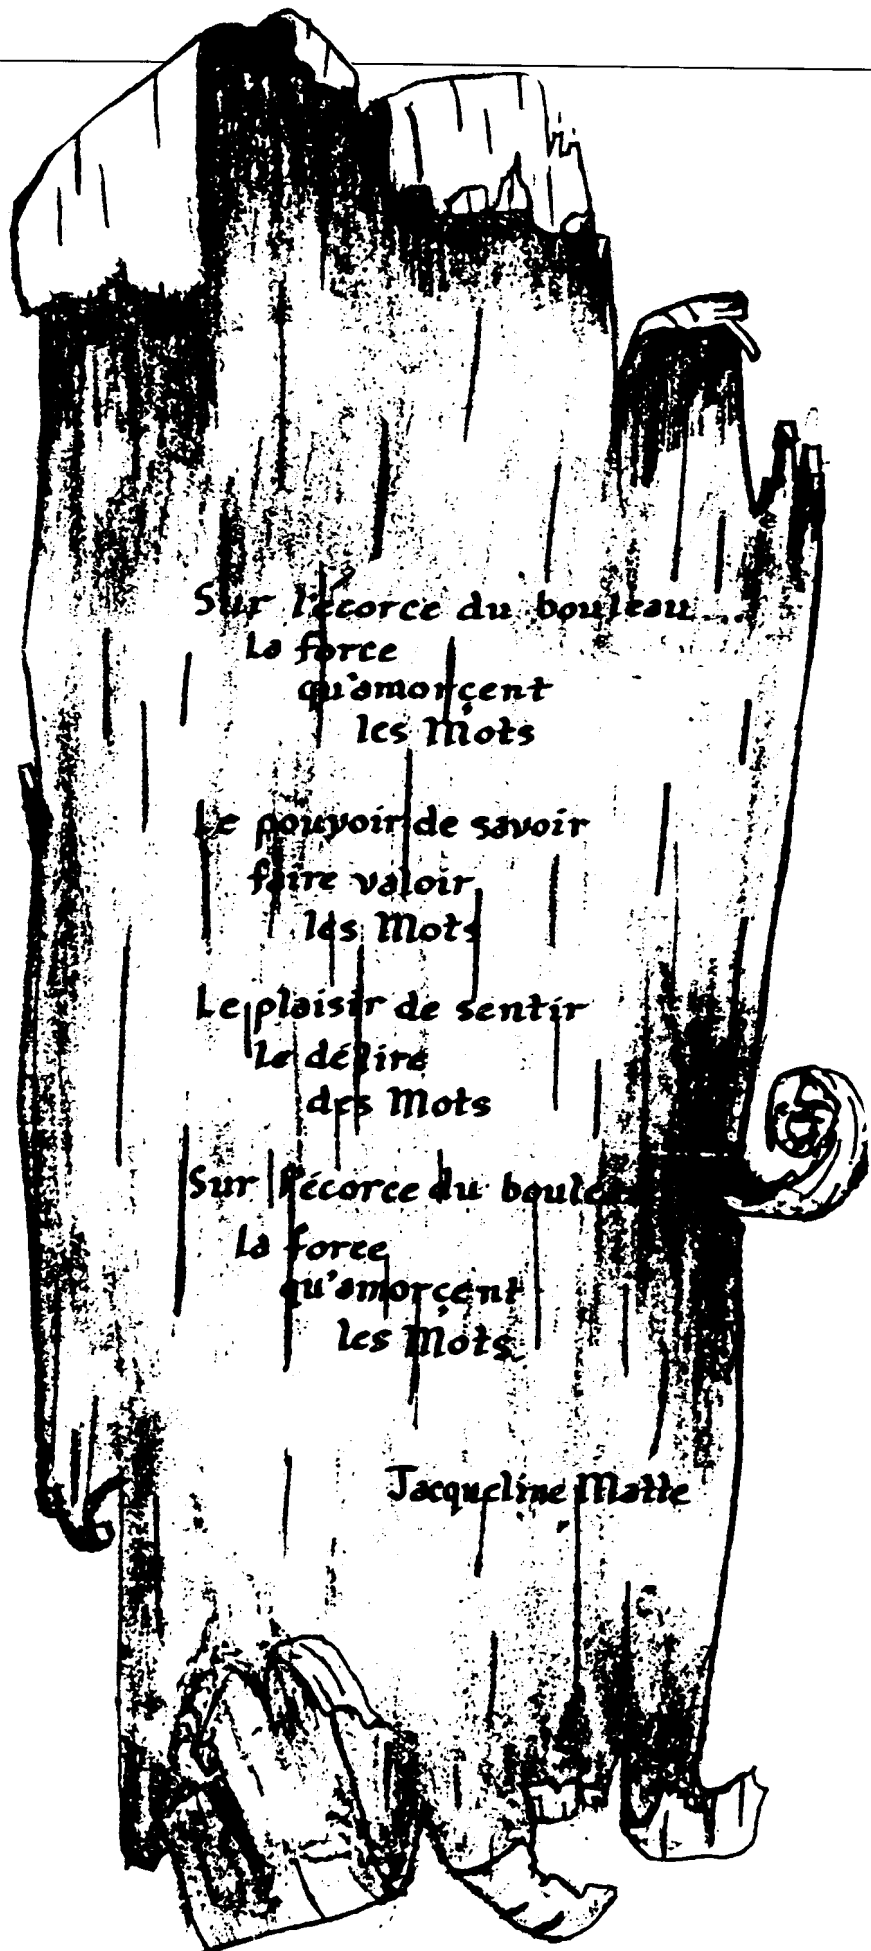 Sur l'écorce du bouleau
La force
qu'amorçent
les Mots
Le pouvoir de savoir
faire valoir
les Mots
Le plaisir de sentir
le délire
des Mots
Sur l'écorce du bouleau
La force
qu'amorçent
les Mots
Jacqueline Matte